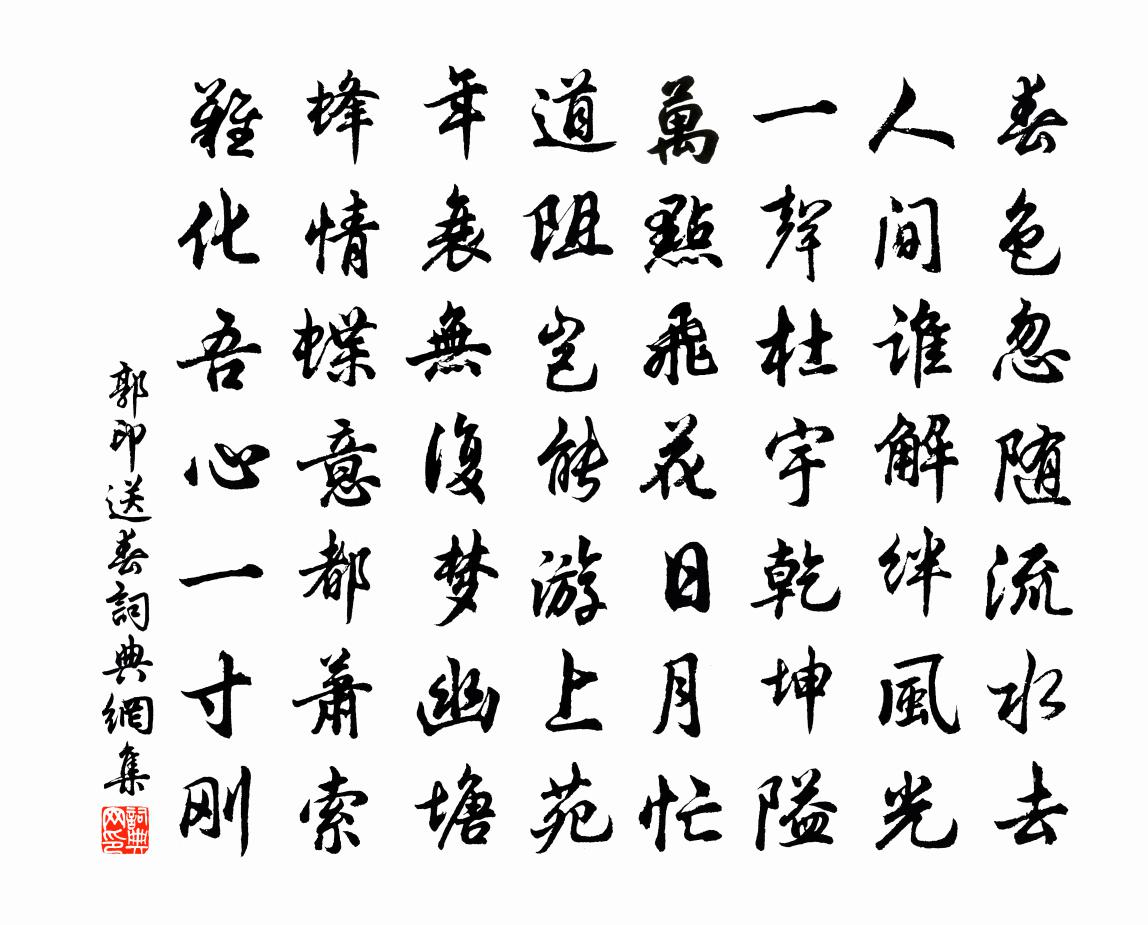 春色忽随流水去
人间谁解绊風光
一聲杜宇乾坤隘
萬點飛花日月忙
道阻岂能游上苑
年衰無復梦幽塘
蜂情蝶意都萧索
難化吾心一寸刚
郭印送春詞典網集
詞典网印